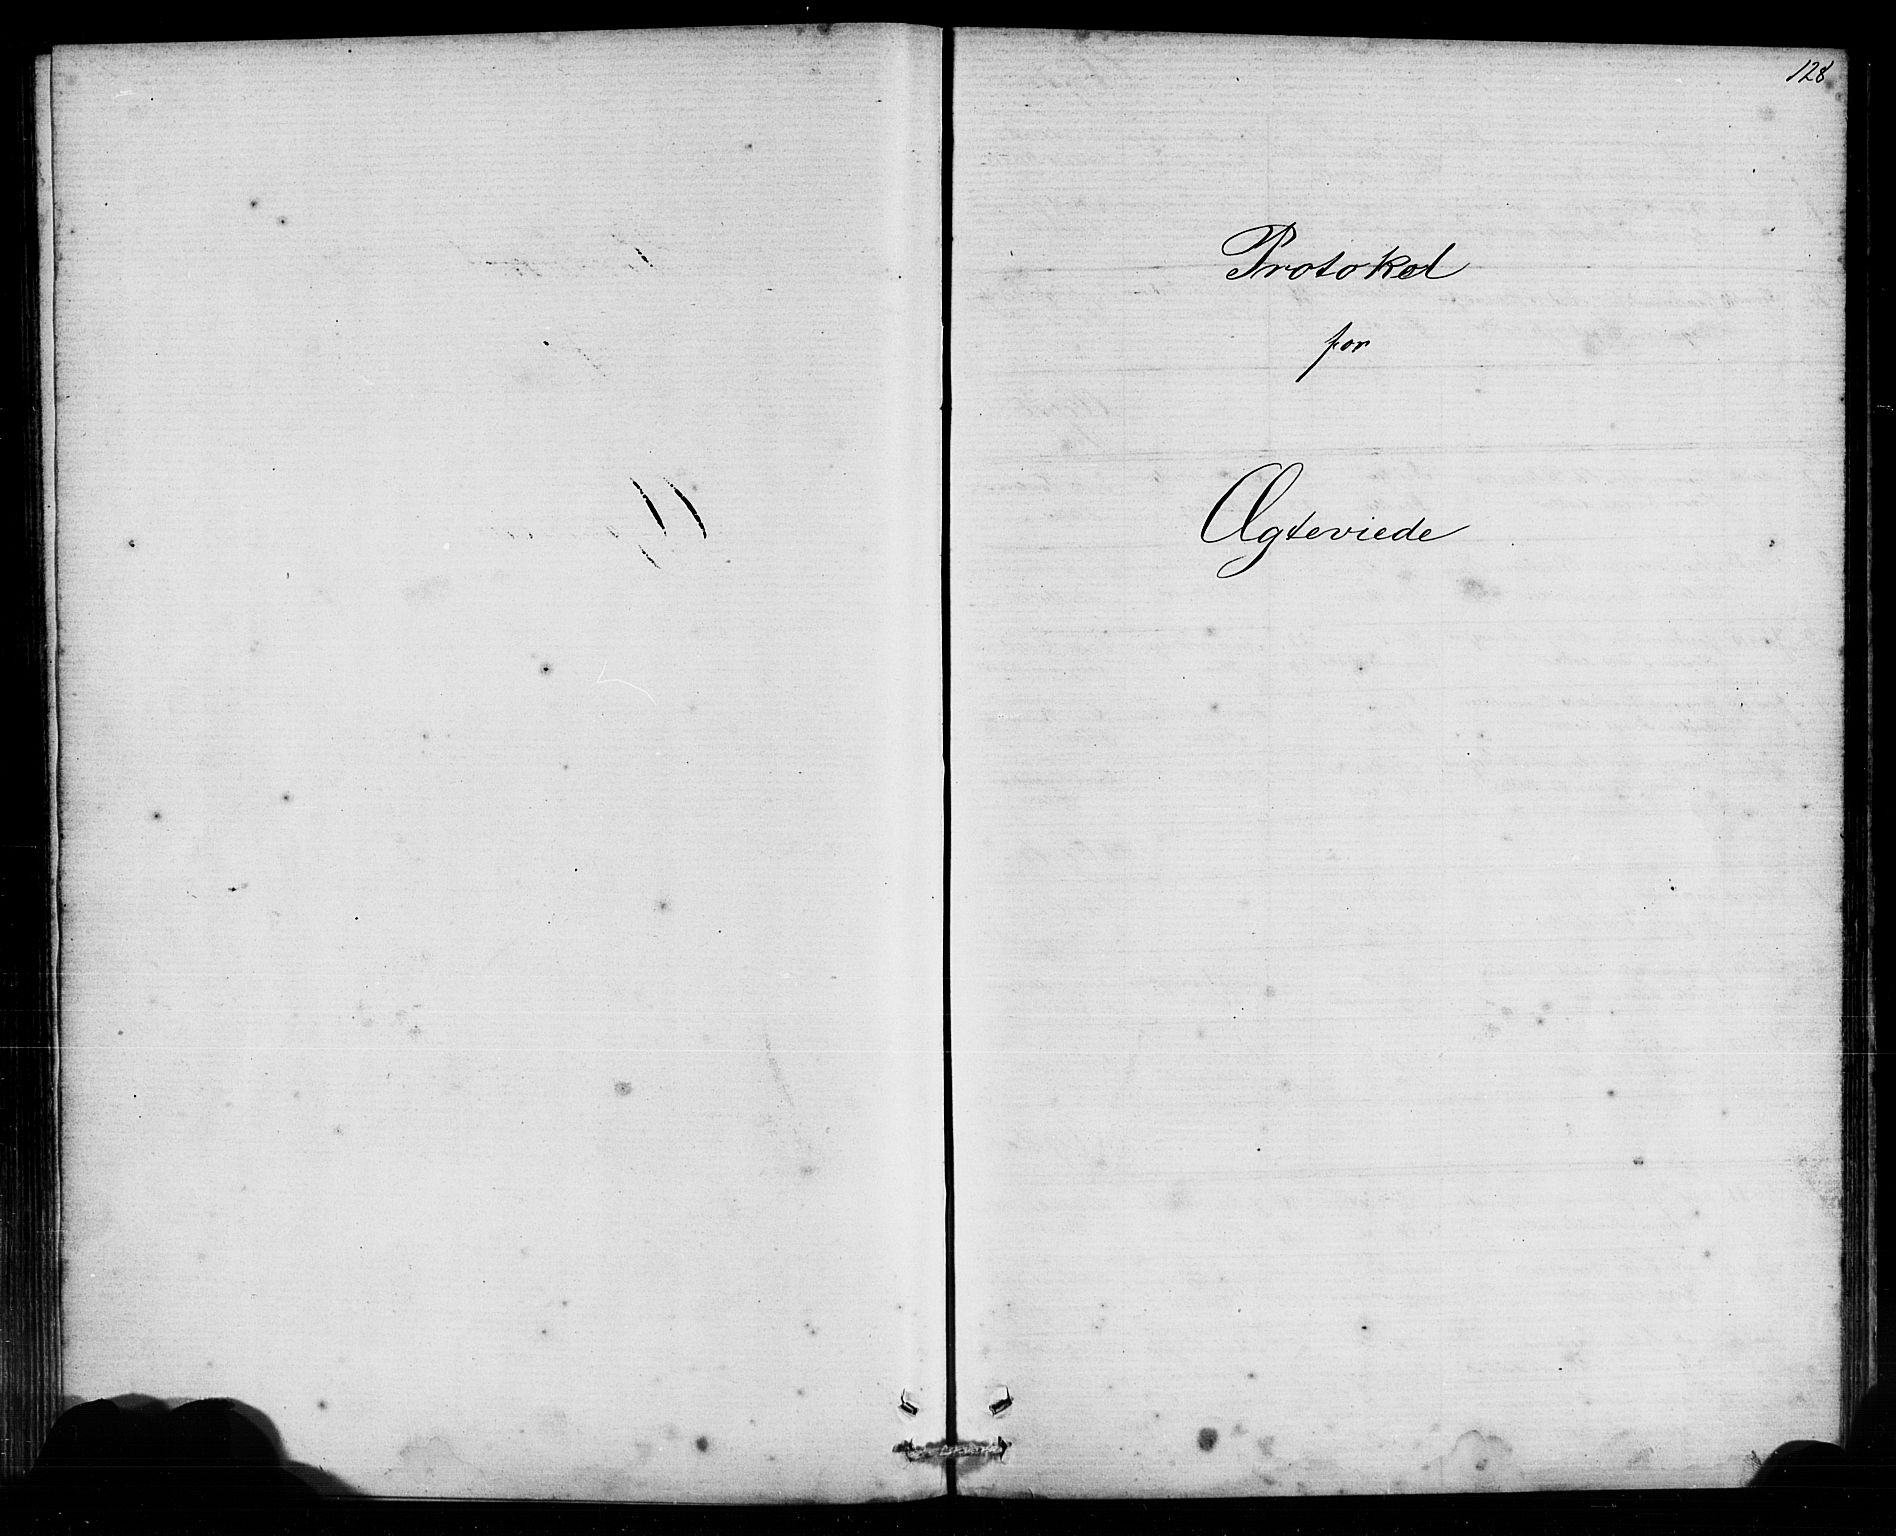 128
Protokol
for
Ægteviede